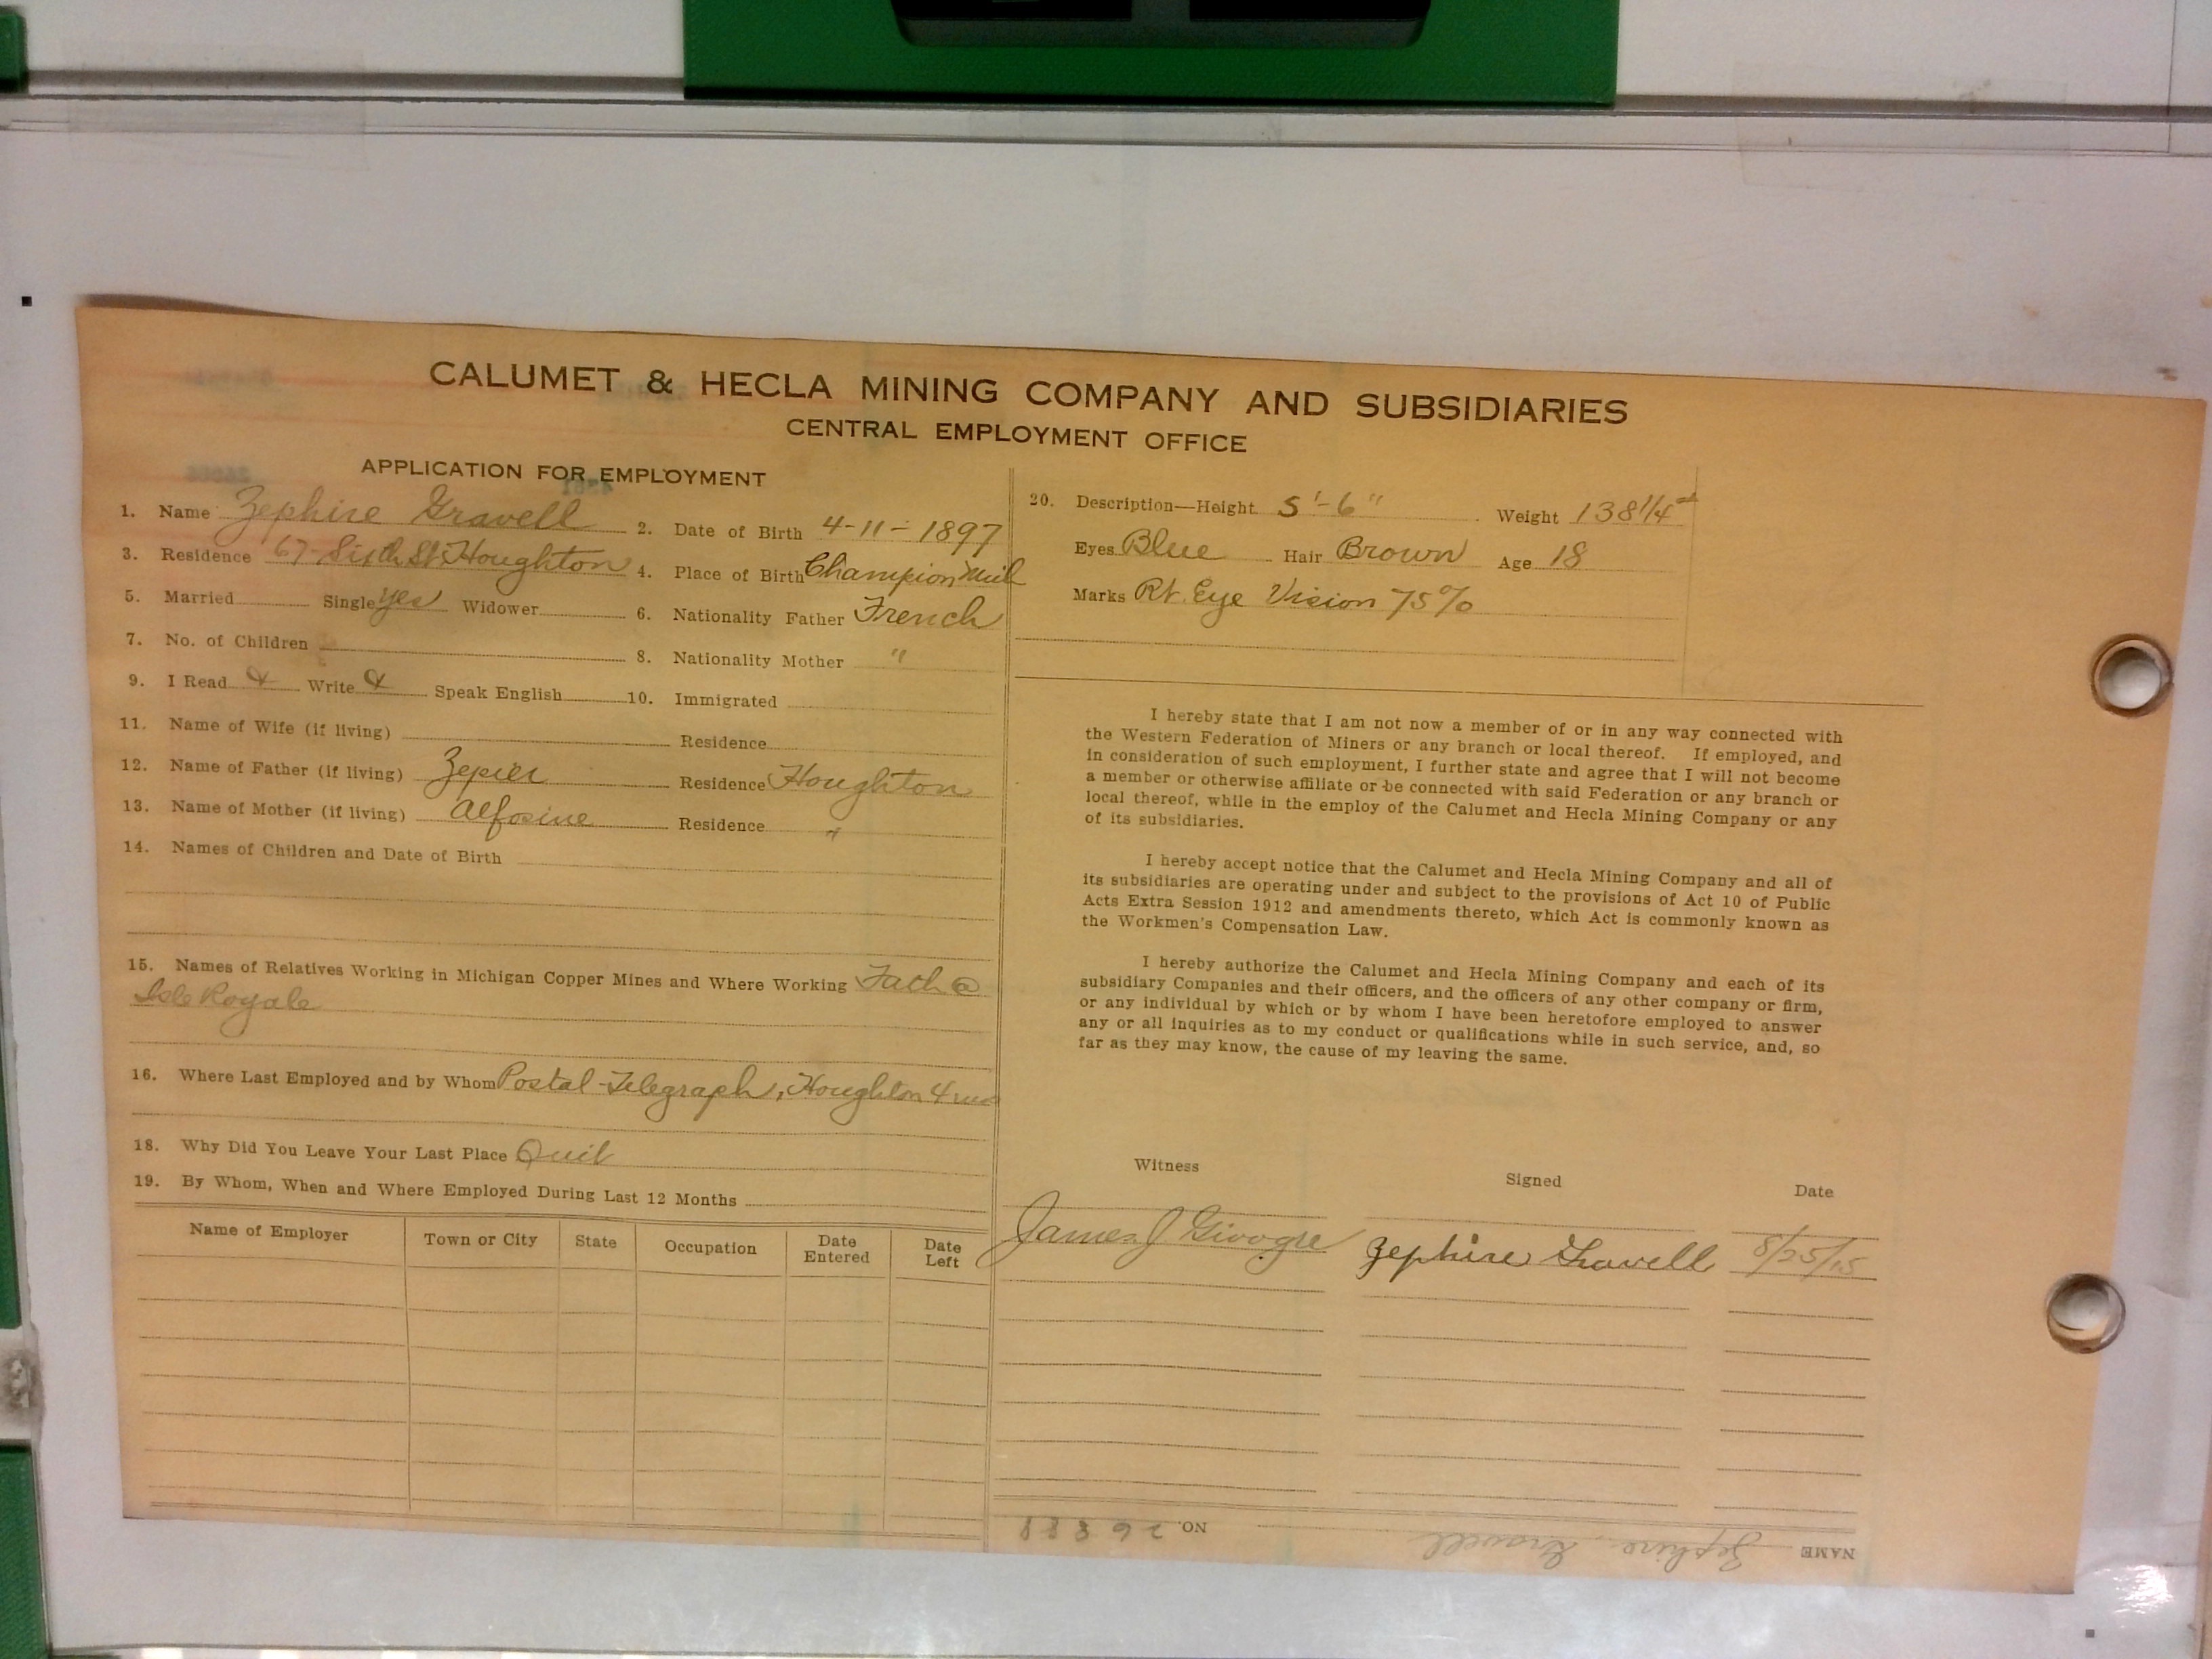 CALUMET & HECLA MINING COMPANY AND SUBSIDIARIES
CENTRAL EMPLOYMENT OFFICE
APPLICATION FOR EMPLOYMENT
1. Name Zephire Gravell 2. Date of Birth 4-11-1897
3. Residence 67 Sixth St Houghton 4. Place of Birth Champion Mich
5. Married Single yes Widower 6. Nationality Father French
7. No. of Children 8. Nationality Mother "
9. I Read Write Speak English 10. Immigrated
11. Name of Wife (if living) Residence
12. Name of Father (if living) Zepier Residence Houghton
13. Name of Mother (if living) Alfosine Residence "
14. Names of Children and Date of Birth
15. Names of Relatives Working in Michigan Copper Mines and Where Working Fath @
Isle Royale
16. Where Last Employed and by Whom Postal-Telegraph, Houghton 4 mos
18. Why Did You Leave Your Last Place Quit
19. By Whom, When and Where Employed During Last 12 Months
Name of Employer Town or City State Occupation Date Entered Date Left
20. Description—Height 5'-6" Weight 138 1/4
Eyes Blue Hair Brown Age 18
Marks Rt. Eye Vision 75%
I hereby state that I am not now a member of or in any way connected with
the Western Federation of Miners or any branch or local thereof. If employed, and
in consideration of such employment, I further state and agree that I will not become
a member or otherwise affiliate or be connected with said Federation or any branch or
local thereof, while in the employ of the Calumet and Hecla Mining Company or any
of its subsidiaries.
I hereby accept notice that the Calumet and Hecla Mining Company and all of
its subsidiaries are operating under and subject to the provisions of Act 10 of Public
Acts Extra Session 1912 and amendments thereto, which Act is commonly known as
the Workmen's Compensation Law.
I hereby authorize the Calumet and Hecla Mining Company and each of its
subsidiary Companies and their officers, and the officers of any other company or firm,
or any individual by which or by whom I have been heretofore employed to answer
any or all inquiries as to my conduct or qualifications while in such service, and, so
far as they may know, the cause of my leaving the same.
Witness Signed Date
James J Zephire Gravell 8/25/15
NAME Zephire Gravell NO. 26888